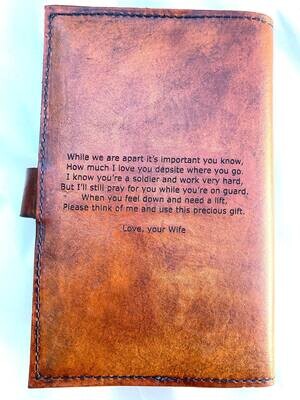 While we are apart it's important you know,
How much I love you depsite where you go.
I know you're a soldier and work very hard,
But I'll still pray for you while you're on guard.
When you feel down and need a lift,
Please think of me and use this precious gift.
Love, your Wife